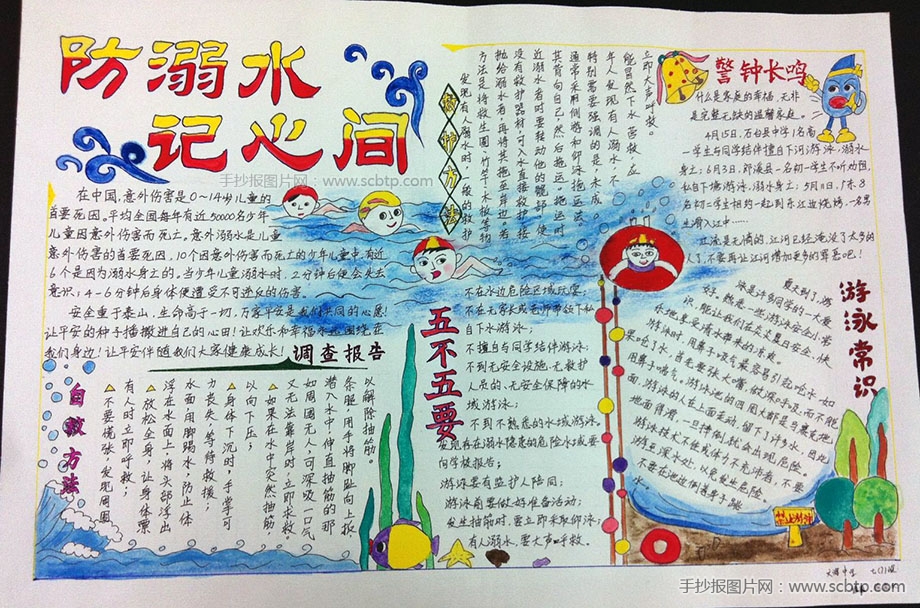 防溺水
记心间
手抄报图片网：www.scbtp.com
在中国，意外伤害是0~14岁儿童的
首要死因。平均全国每年有近50000名少年
儿童因意外伤害而死亡。意外溺水是儿童
意外伤害的首要死因，10个因意外伤害而死亡的少年儿童中，有近
6个是因为溺水身亡的。当少年儿童溺水时，2分钟后便会失去
意识；4-6分钟后身体便遭受不可逆反的伤害。
安全重于泰山，生命高于一切，万家平安是我们共同的心愿！
让平安的种子播撒进自己的心田！让欢乐和幸福永远围绕在
我们身边！让平安伴随我们大家健康成长！
调查报告
自救方法
不要慌张，发现周围
有人时立即呼救；
放松全身，让身体漂
浮在水面上，将头部浮出
水面，用脚踢水，防止体
力丧失，等待救援；
身体下沉时，手掌可
以向下压；
如果在水中突然抽筋，
又无法靠岸时，立即求救。
如周围无人，可深吸一口气
潜入水中，伸直抽筋的那
条腿，用手将脚趾向上扳，
以解除抽筋。
救护方法
发现有人溺水时，一般的救护
方法是将救生圈、竹竿、木板等物
抛给溺水者，再将其拖至岸边；若
没有救护器材，可入水直接救护。接
近溺水者时要转动他的髋部，使
其背向自己，然后拖运。拖运时
通常采用侧游和仰泳拖运法。
特别需要强调的是：未成
年人发现有人溺水，不
能冒然下水营救，应
立即大声呼救。
五不五要
不在水边危险区域玩耍；
不在无家长或无师带领下私
自下水游泳；
不擅自与同学结伴游泳；
不到无安全设施、无救护
人员的、无安全保障的水
域游泳；
不到不熟悉的水域游泳。
发现存在溺水隐患的危险水域要
向学校报告；
游泳要有监护人陪同；
游泳前要做好准备活动；
发生抽筋时，要立即采取仰泳；
有人溺水，要大声呼救。
警钟长鸣
什么是家庭的幸福，无非
是完整无缺的温馨家庭。
4月15日，万安县中学1名高
一学生与同学结伴擅自下河游泳，溺水
身亡；6月3日，
一名初一学生不听劝阻，
私自下塘游泳，溺水身亡；5月11日，
8名初二学生相约一起到东江边烧烤，一名男
生滑入江中……
江流是无情的，江河已经淹没了太多的
人了，不要再让江河增加更多的罪恶吧！
游泳常识
夏天到了，游
泳是许多同学的一大爱
好，熟悉一些游泳安全小常
识，能让我们在炎炎夏日安全、快
乐地享受清水带来的凉爽。
游泳时，用鼻子吸气最容易引起呛水，如
果呛了水，首先要张大嘴，做深呼吸，而不能
用鼻子喘气。游泳池的四周大都是马赛克地
面，游泳的人在上面走动，留下了许多水，因此
地面背滑，一旦摔倒，就会出现危险。
游泳技术不佳或体力不充沛者，不要
游至深水处，以免发生危险。
不要在池边倒着身子跳
水。
禁止游泳
手抄报图片网：www.scbtp.com